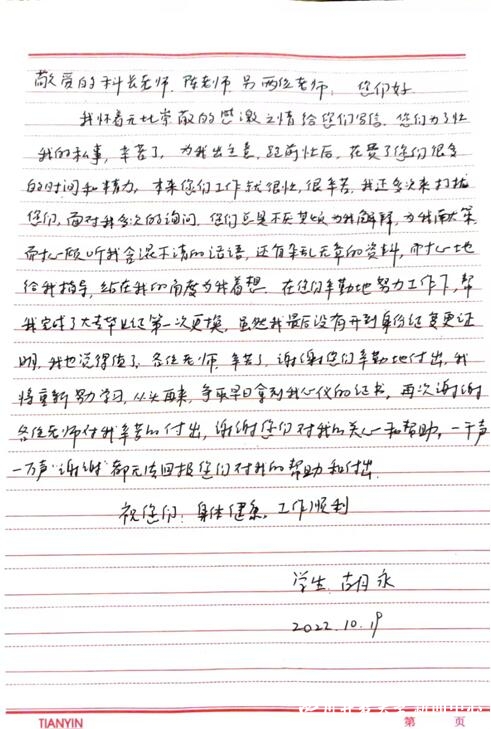 敬爱的科长老师、陈老师另两位老师：您们好
我怀着无比崇敬的感激之情给您们写信，您们为了忙
我的私事，辛苦了，为我出主意，跑前忙后，花费了您们很多
的时间和精力，本来您们工作就很忙，很辛苦，我还多次来打扰
您们，面对我多次的询问，您们总是不厌其烦为我解释，为我献策
而耐心倾听我含混不清的话语，还有杂乱无章的资料，耐心地
给我指导，站在我的角度为我着想。在您们辛勤地努力工作下，帮
我完成了大专毕业证第一次更换，虽然我最后没有开到身份经变更证
明，我也觉得值了，各位老师，辛苦了，谢谢您们辛勤地付出，我
将重新努力学习，从头再来，争取早日拿到我心仪的证书，再次谢谢
各位老师付我辛苦的付出，谢谢您们对我的关心和帮助，一千声
一万声“谢谢”都无法回报您们对我的帮助和付出。
祝您们：身体健康，工作顺利
学生：胡永
2022.10.19
TIANYIN 第 页